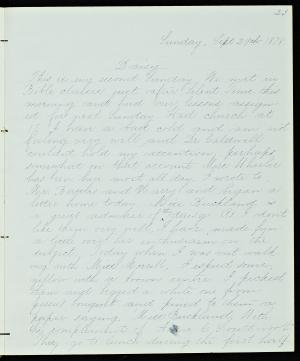 23
Sunday, Sept 29th 1878.
Daisy
This is my second Sunday. We met in
Bible classes just after Silent Time this
morning and had our lesson assign-
ed for next Sunday. Had church at
11. I have a bad cold and am not
feeling very well and Dr. Caldwell
couldn't hold my attention, perhaps
somewhat on that account. Miss
has been here most all day. I wrote to
Mrs. and Harry and began a
letter home today. Miss Buckland is
a great admirer of the daisy. As I don't
like them very well, I have made fun
a little over her enthusiasm on the
subject. Today when I was out walk-
ing with Miss Morrill, I espied some
yellow with a brown centre. I picked
them and begged a white one from
bouquet and pinned to them a
paper saying Miss Buckland, With
the compliments of
They go to lunch during the first half